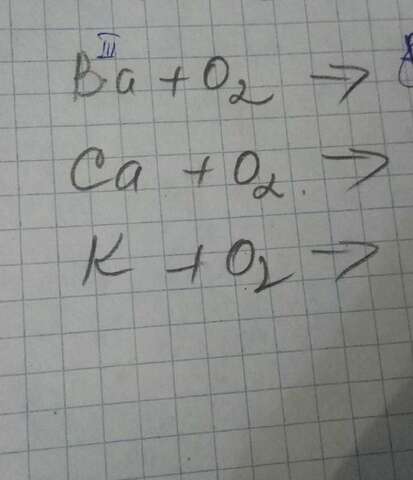 III
Ba + O2 →
Ca + O2 →
K + O2 →